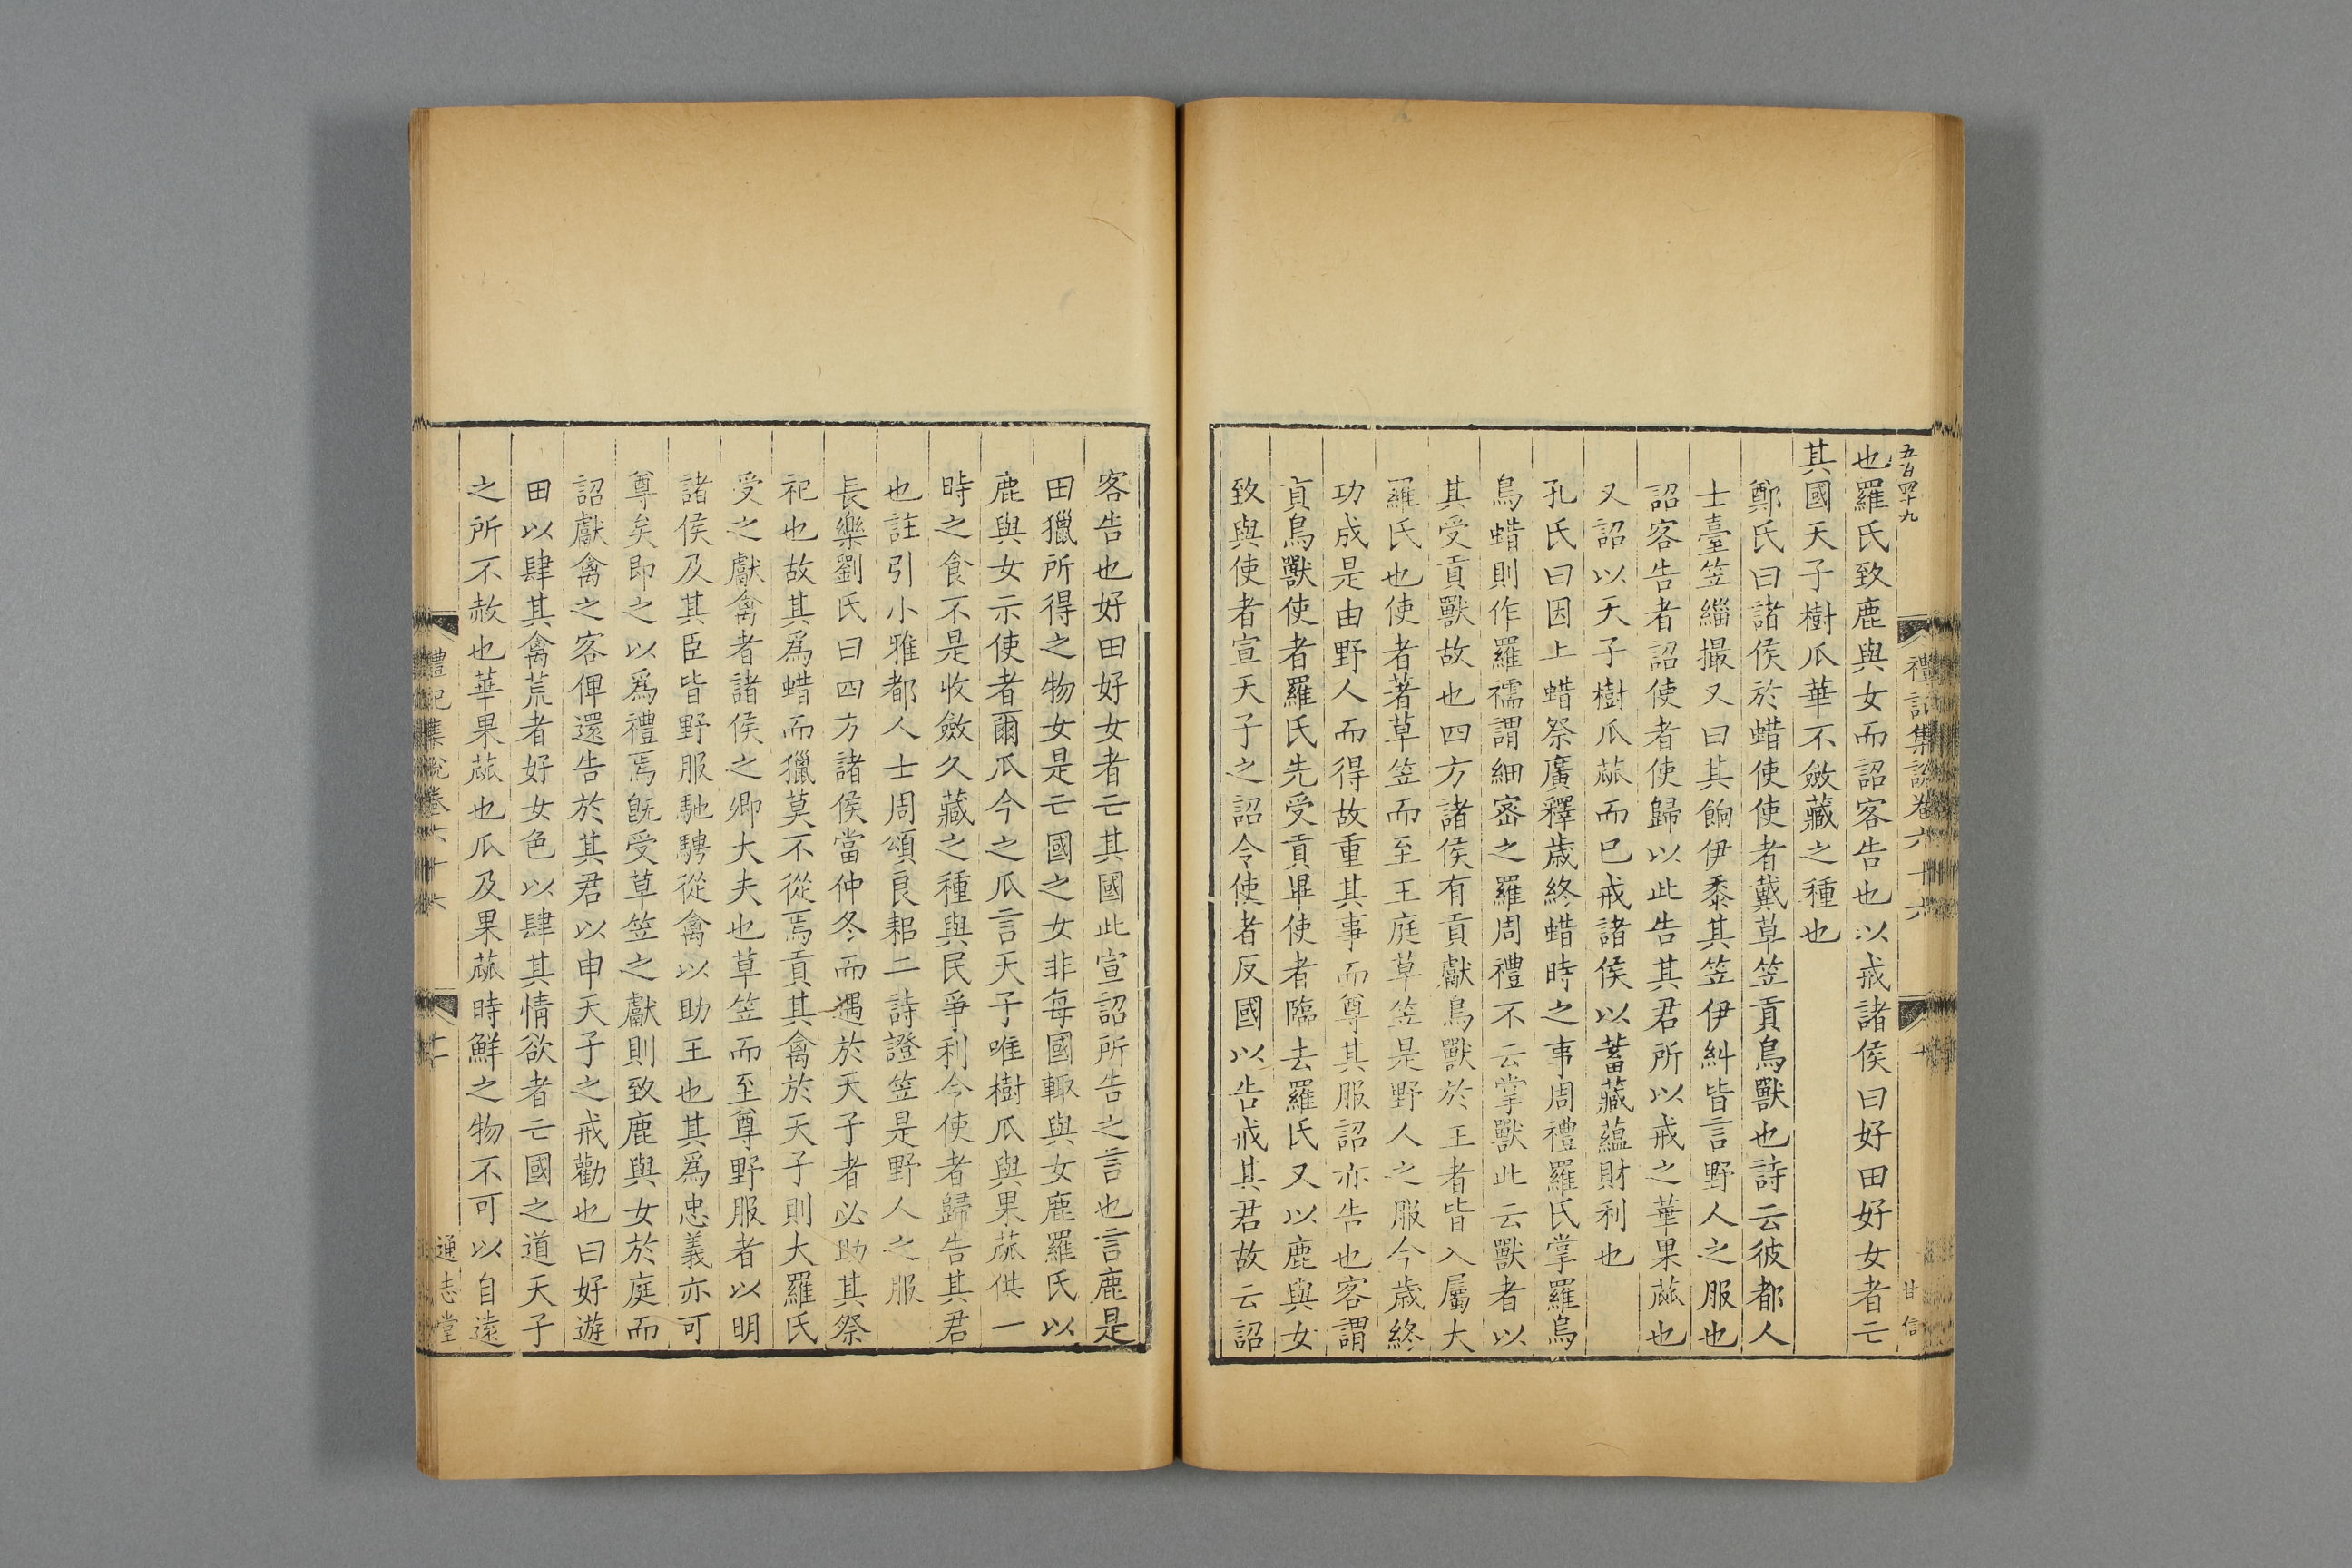 五百四十九
禮記集說卷六十六
十
甘信
也羅氏致鹿與女而詔客告也以戒諸侯曰好田好女者亡
其國天子樹瓜華不斂藏之種也
鄭氏曰諸侯於蜡使使者戴草笠貢鳥獸也詩云彼都人
士臺笠緇撮又曰其餉伊黍其笠伊糾皆言野人之服也
詔客告者詔使者使歸以此告其君所以戒之華果蓏也
又詔以天子樹瓜蓏而已戒諸侯以蓄藏蘊財利也
孔氏曰因上蜡祭廣釋歲終蜡時之事周禮羅氏掌羅烏
烏蜡則作羅襦謂細宻之羅周禮不云掌獸此云獸者以
其受貢獸故也四方諸侯有貢獻鳥獸於王者皆入屬大
羅氏也使者著草笠而至王庭草笠是野人之服今歲終
功成是由野人而得故重其事而尊其服詔亦告也客謂
貢鳥獸使者羅氏先受貢畢使者臨去羅氏又以鹿與女
致與使者宣天子之詔令使者反國以告戒其君故云詔
客告也好田好女者亡其國此宣詔所告之言也言鹿是
田獵所得之物女是亡國之女非每國輙與女鹿羅氏以
鹿與女示使者爾瓜今之瓜言天子唯樹瓜與果蓏供一
時之食不是收斂久藏之種與民爭利令使者歸告其君
也註引小雅都人士周頌良耜二詩證笠是野人之服
長樂劉氏曰四方諸侯當仲冬而遇於天子者必助其祭
祀也故其爲蜡而獵莫不從焉貢其禽於天子則大羅氏
受之獻禽者諸侯之卿大夫也草笠而至尊野服者以明
諸侯及其臣皆野服馳騁從禽以助王也其爲忠義亦可
尊矣即之以爲禮焉旣受草笠之獻則致鹿與女於庭而
詔獻禽之客俾還告於其君以申天子之戒勸也曰好遊
田以肆其禽荒者好女色以肆其情欲者亡國之道天子
之所不赦也華果蓏也瓜及果蓏時鮮之物不可以自遠
禮記集說卷六十六
十一
通志堂